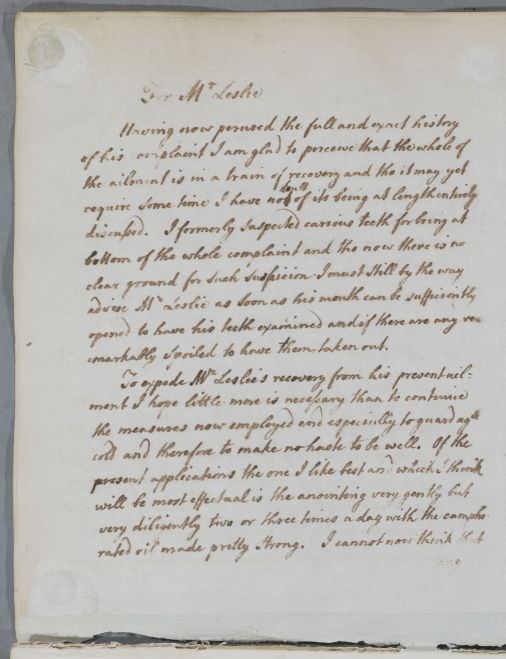 For Mr Leslie
Having now perused the full and exact history
of his complaint I am glad to perceive that the whole of
the ailment is in a train of recovery and tho it may yet
require some time I have no doubt of its being at length entirely
discussed. I formerly suspected carious teeth for being at
bottom of the whole complaint and tho now there is no
clear ground for such suspicion I must still by the way
advise Mr Leslie as soon as his mouth can be sufficiently
opened to have his teeth examined and if there are any re=
=markably spoiled to have them taken out.
To expede Mr Leslie's recovery from his present ail=
ment I hope little more is necessary than to continue
the measures now employed and especially to guard agst
cold and therefore to make no haste to be well. Of the
present applications the one I like best and which I think
will be most effectual is the anointing very gently but
very diligently two or three times a day with the campho
rated oil made pretty strong. I cannot now think that
any